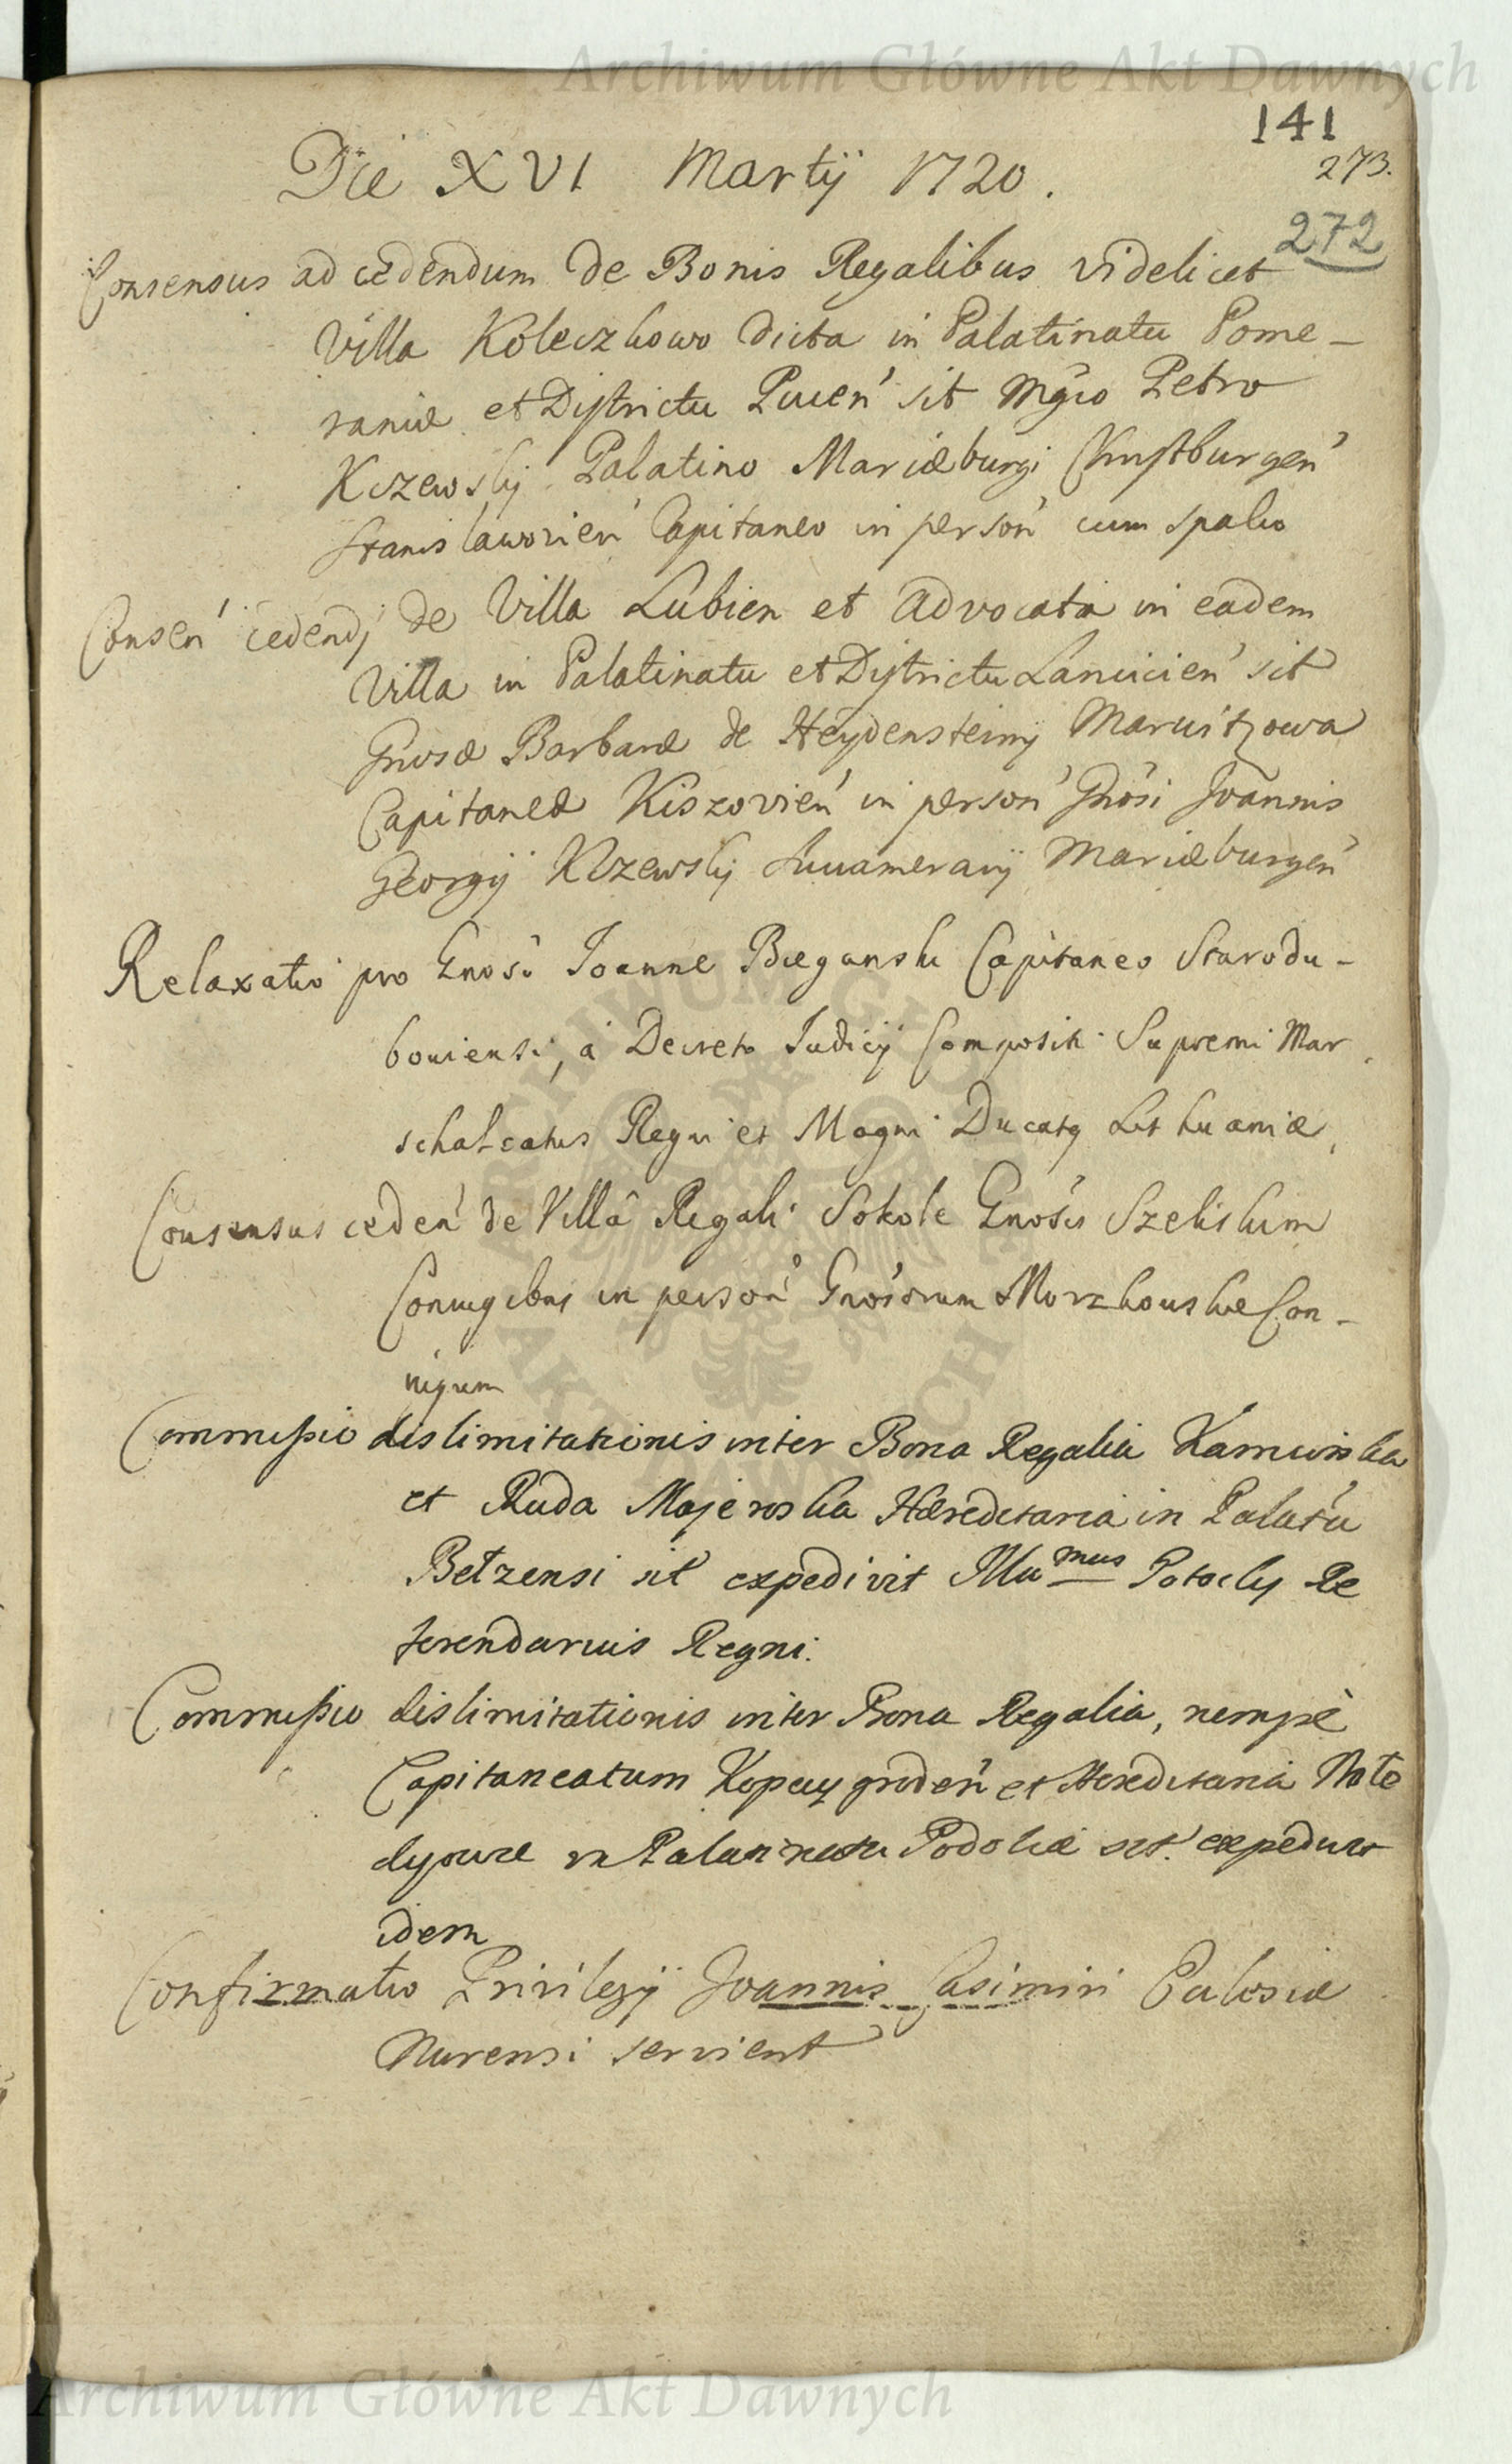 Archiwum Główne Akt Dawnych
141
273.
272
Die XVI Martij 1720.
Consensus ad cedendum de Bonis Regalibus videlicet
Villa Koleczkowo dicta in Palatinatu Pome-
raniæ et Districtu Pucen' sit Mgco Petro
Kczewskj Palatino Mariæburgi Christburgen'
Stanislawovien' Capitaneo in person' cum spatio
Consen' cedendj de Villa Lubien et Advocatia in eadem
Villa in Palatinatu et Districtu Lancicien' sit
Gnosæ Barbaræ de Heydensteinij
Capitaneæ Kiszovien' in person' Gnosi Joannis
Georgij Kczewskj Succamerarij Mariæburgen'
Relaxatio pro Gnoso Joanne Bieganski Capitaneo Starodu-
boviensi, à Decreto Judicij Compositi Supremi Mar
schalcatus Regni et Magni Ducatus Lithuaniæ,
Consensus ceden' de Villâ Regali Sokole Gnosis Szeliskim
Conjugibus in person' Gnosorum Con-
jugum
Commissio dislimitationis inter Bona Regalia Kamionka
et Ruda Majerowska Hæreditaria in Palatu
Betzensi sit expedivit Illumus Potocky Re
ferendarius Regni.
Commissio dislimitationis inter Bona Regalia, nempè
Capitaneatum Kopaygroden' et Hæreditaria
in Palatinatu Podoliæ sit. expedivit
idem
Confirmatio Privilegij Joannis Casimiri Ecclesiæ
Nurensi servient
ARCHIWUM GŁÓWNE
AKT DAWNYCH
Archiwum Główne Akt Dawnych